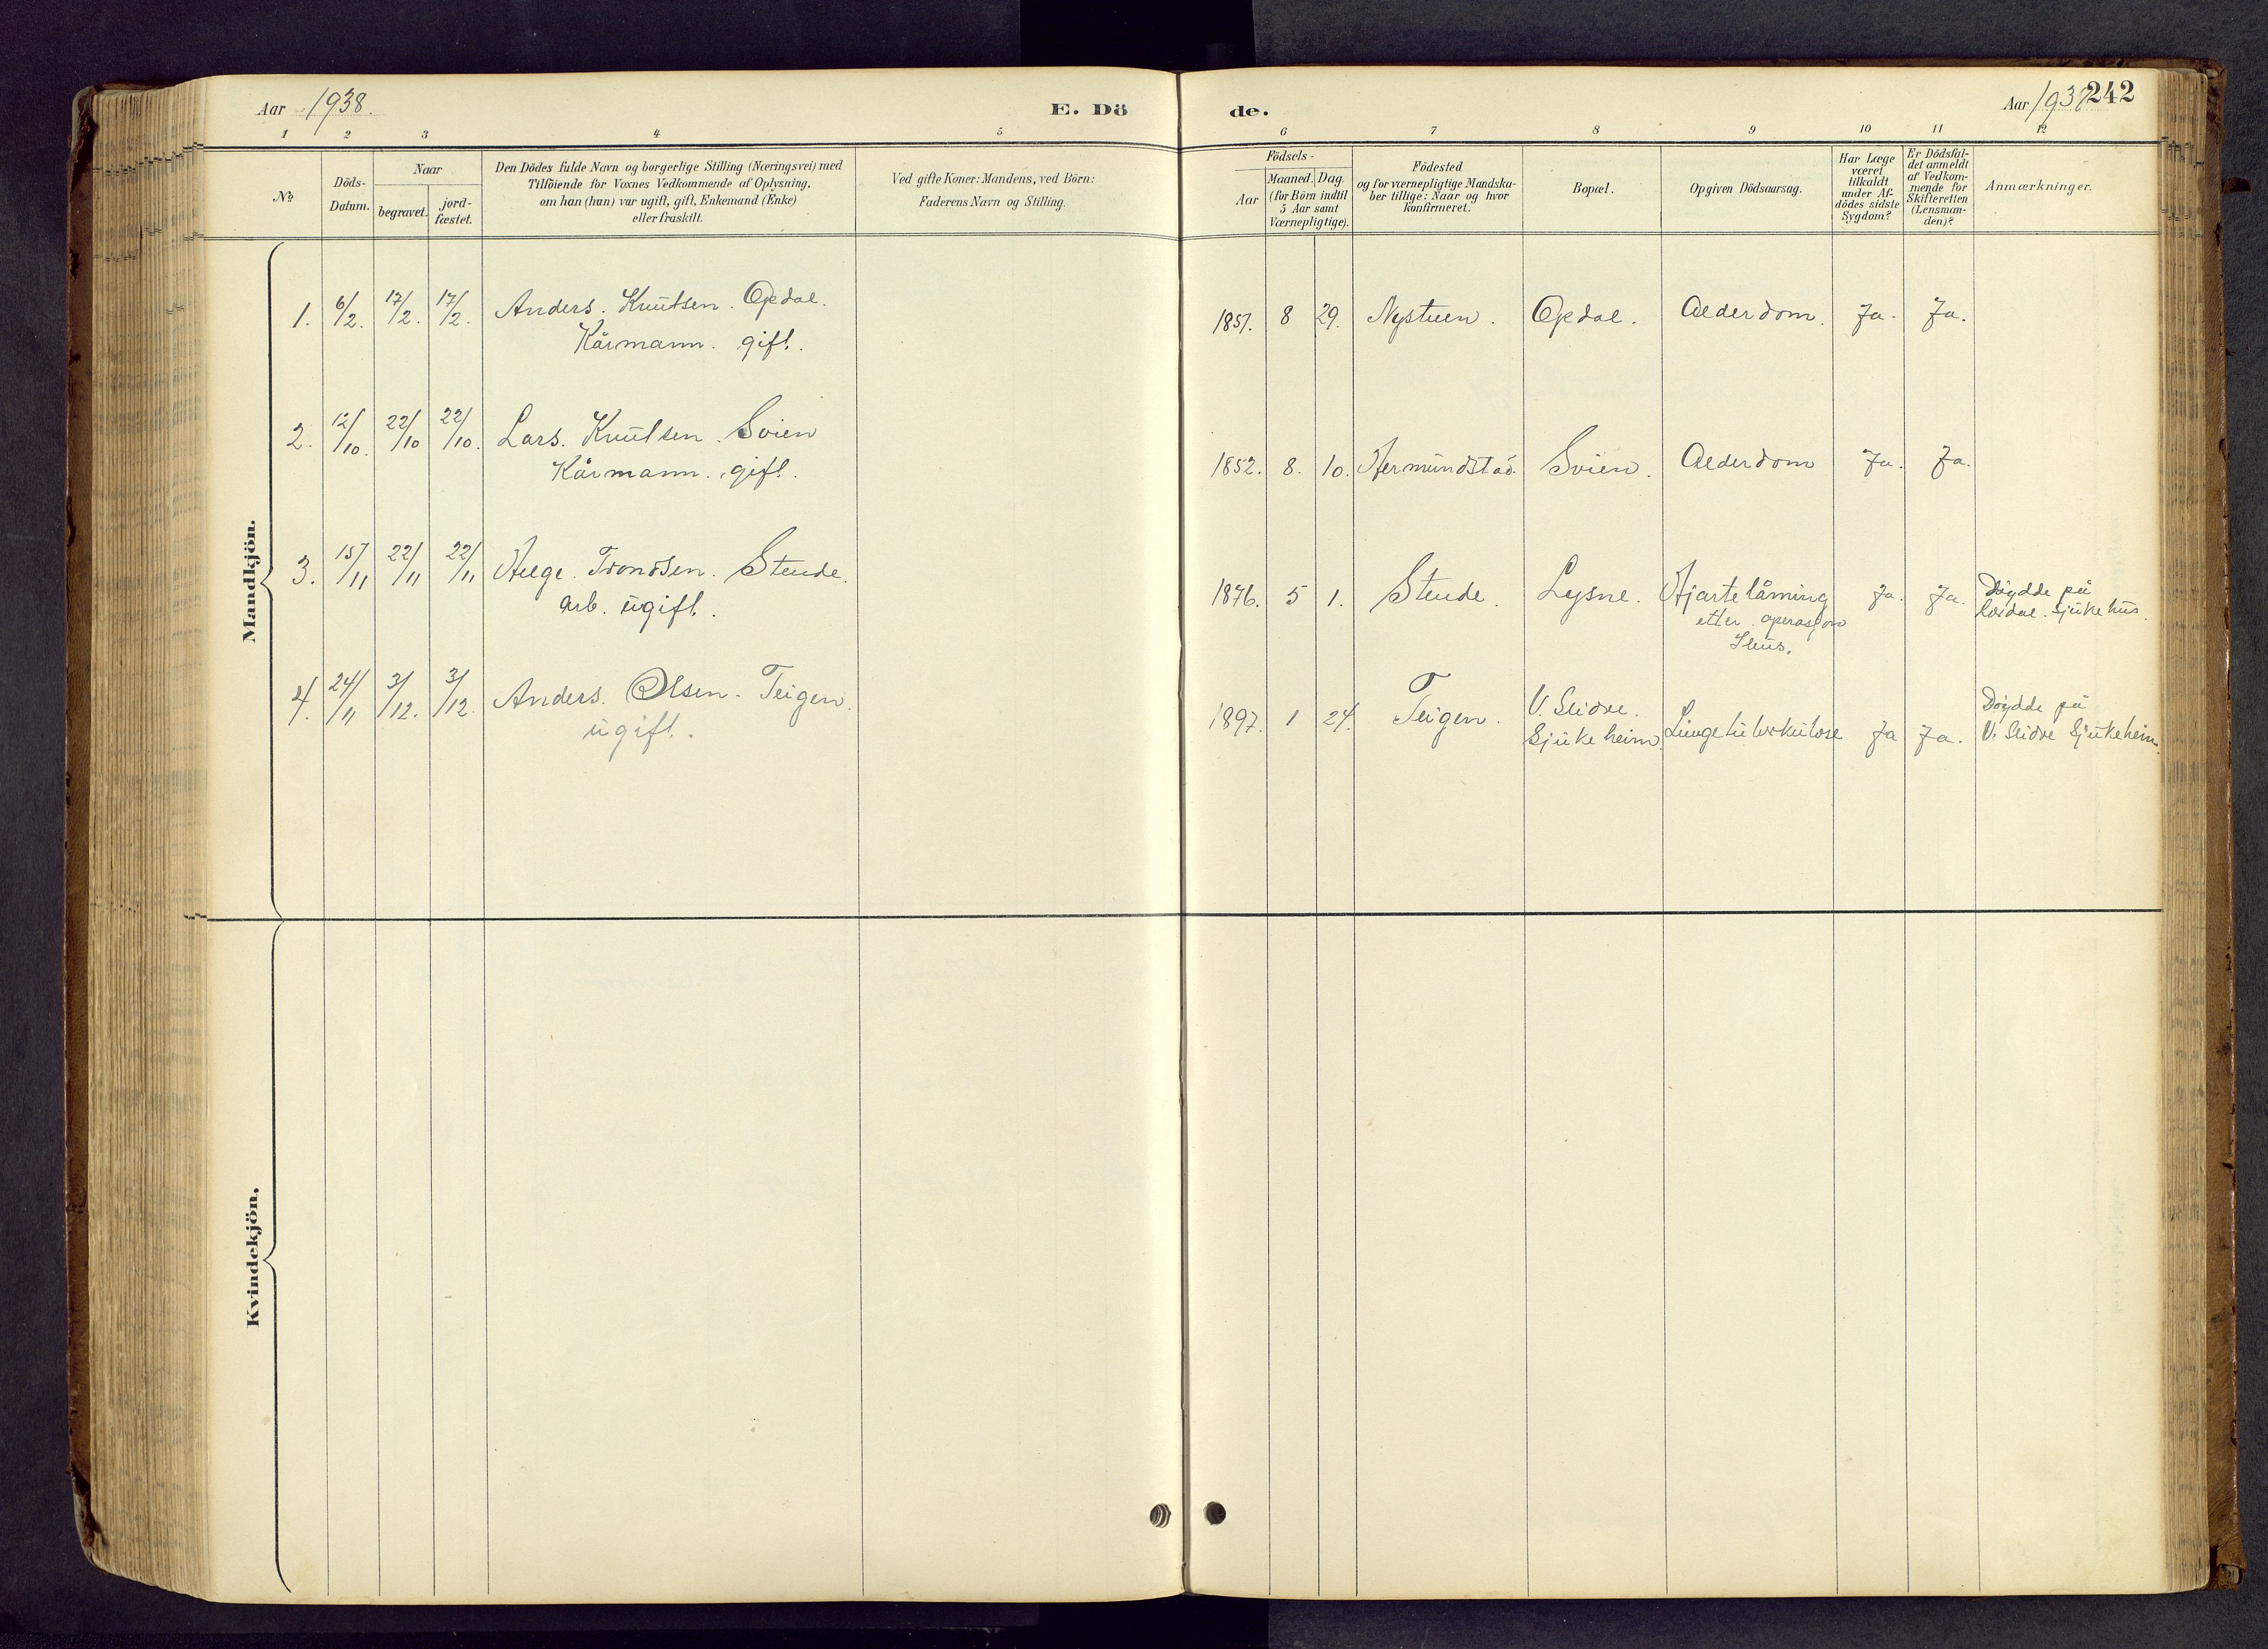 Aar 1938.
E. Dö
de.
Aar 1938
242
1 2 3 4 5 6 7 8 9 10 11 12
No
Döds-
Datum.
Naar
begravet.
jord-
fæstet.
Den Dödes fulde Navn og borgerlige Stilling (Næringsvei) med
Tilföiende for Voxnes Vedkommende af Oplysning,
om han (hun) var ugift, gift, Enkemand (Enke)
eller fraskilt.
Ved gifte Koner: Mandens, ved Börn:
Faderens Navn og Stilling.
Födsels-
Aar
Maaned. Dag.
(for Börn indtil
5 Aar samt
Værnepligtige).
Födested
og for værnepligtige Mandska-
ber tillige: Naar og hvor
konfirmeret.
Bopæl.
Opgiven Dödsaarsag.
Har Læge
været
tilkaldt
under Af-
dödes sidste
Sygdom?
Er Dödsfal-
det anmeldt
af Vedkom-
mende for
Skifteretten
(Lensman-
den)?
Anmærkninger.
Mandkjön.
1. 6/2. 17/2. 17/2. Anders. Knutsen. Opdal. 1857. 8 29. Nystuen. Opdal. Alderdom. Ja. Ja.
Kårmann. gift.
2. 12/10. 22/10 22/10. Lars. Knutsen. Svien 1852. 8. 10. Hermundstad. Svien. Alderdom Ja. Ja.
Kårmann. gift.
3. 15/11 22/11 22/11 Helge. Trondsen. Stende. 1876. 5 1. Stende. Lysne. Hjartelåming Ja. Ja. Döydde på
arb. ugift. etter operasjon Lærdal. Sjukehus.
Ileus.
4. 24/11 3/12. 3/12. Anders. Olsen. Teigen. 1897. 1 24. Teigen. V. Slidre. Lungetuberkulose Ja Ja. Döydde på
ugift. Sjukeheim V. Slidre Sjukeheim.
Kvindekjön.